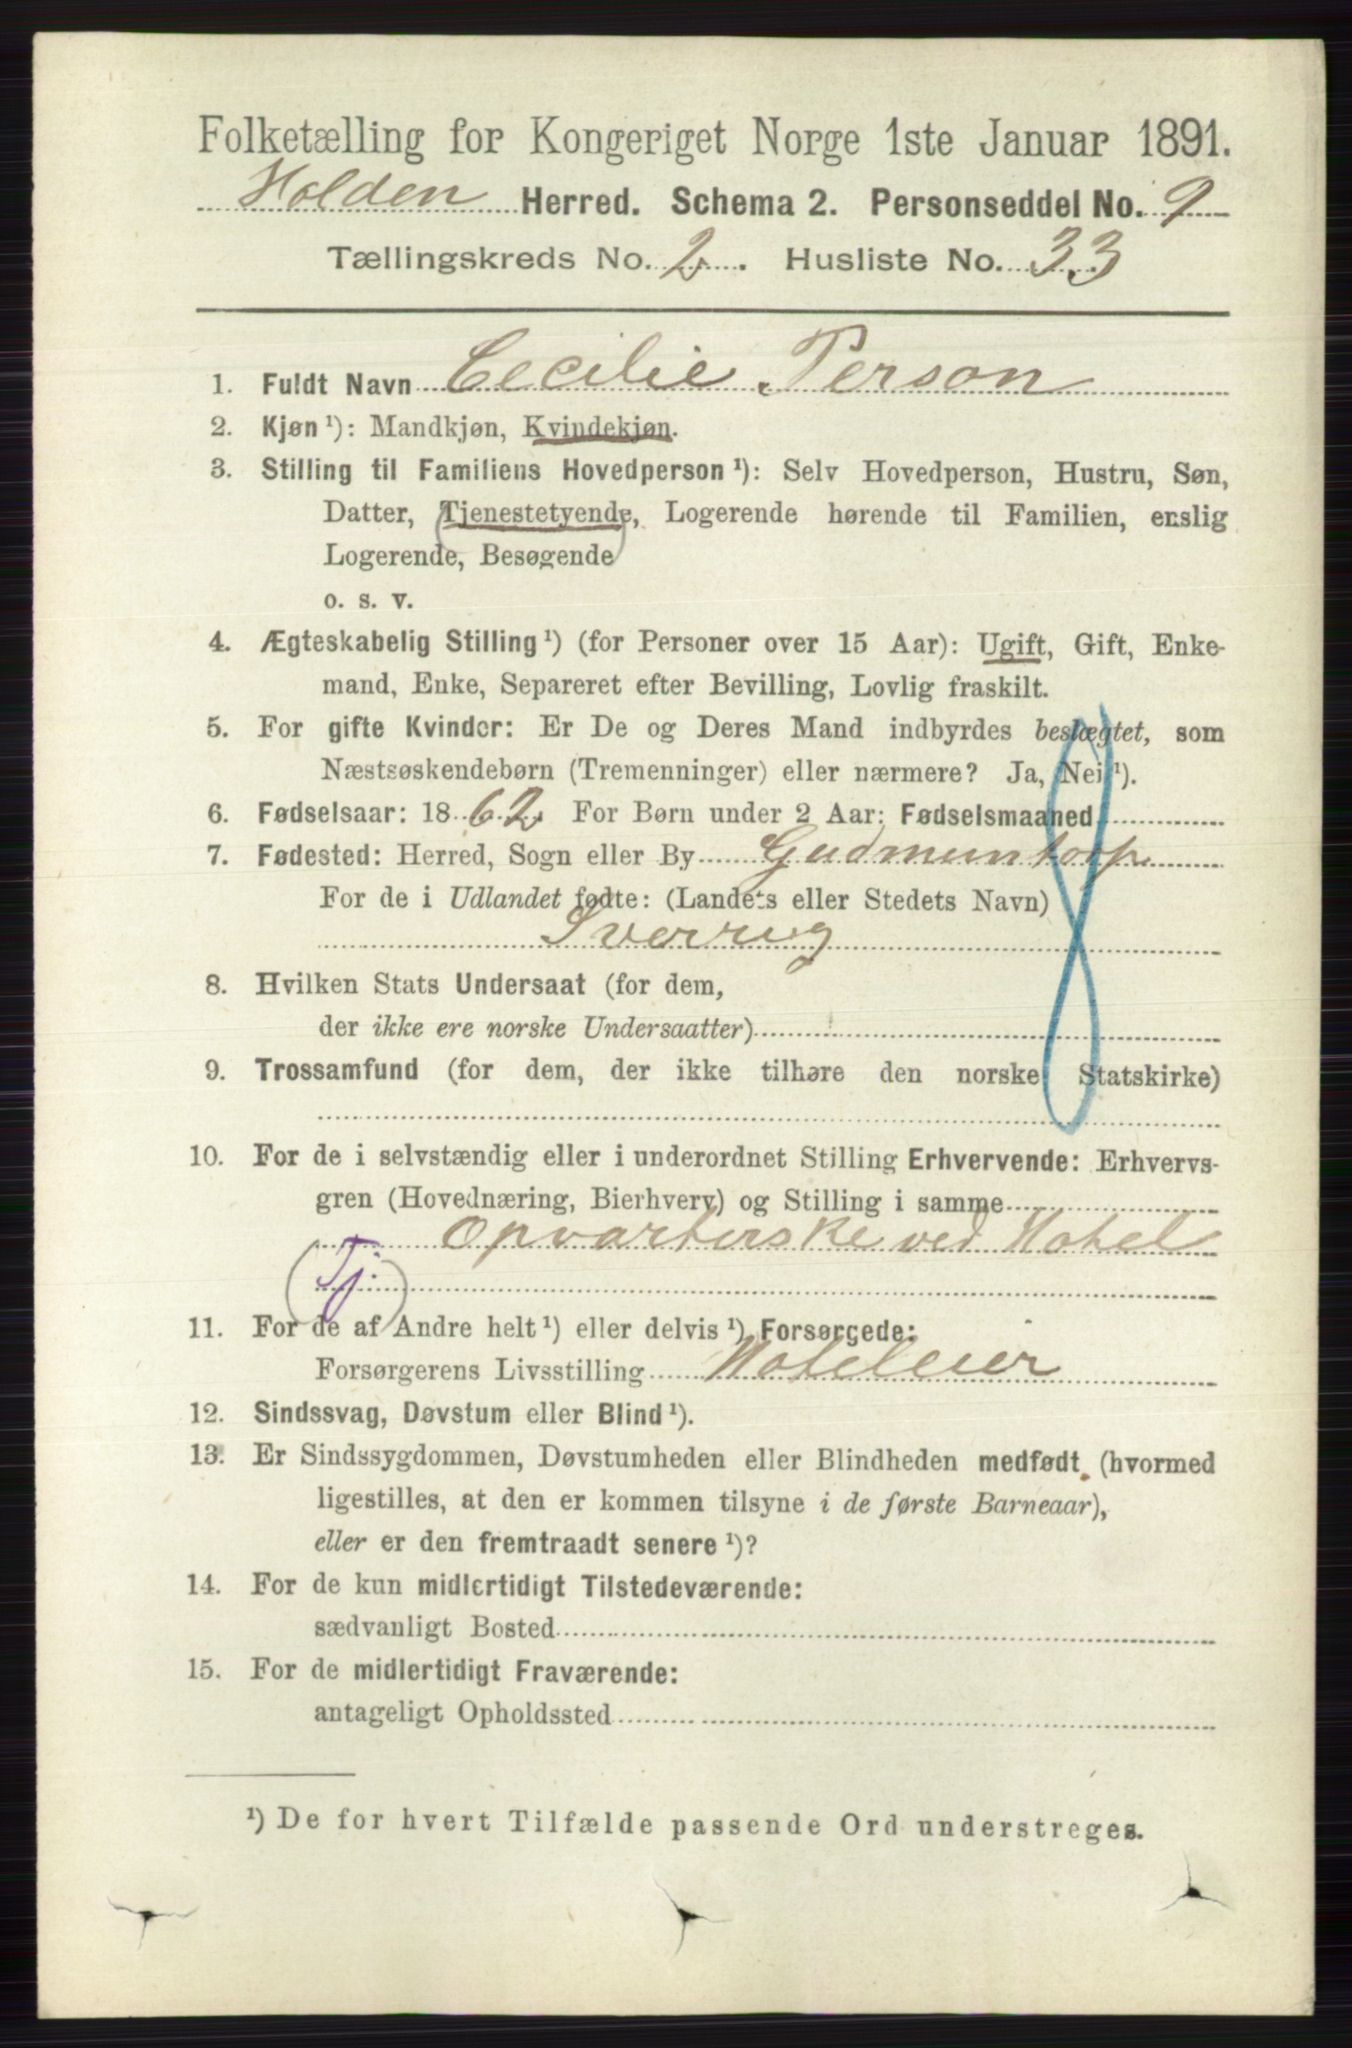 Folketælling for Kongeriget Norge 1ste Januar 1891.
Holden Herred. Schema 2. Personseddel No. 9
Tællingskreds No. 2. Husliste No. 33
1. Fuldt Navn Cecilie Person
2. Kjøn ¹): Mandkjøn, Kvindekjøn.
3. Stilling til Familiens Hovedperson ¹): Selv Hovedperson, Hustru, Søn,
Datter, (Tjenestetyende), Logerende hørende til Familien, enslig
Logerende, Besøgende
o. s. v.
4. Ægteskabelig Stilling ¹) (for Personer over 15 Aar): Ugift, Gift, Enke-
mand, Enke, Separeret efter Bevilling, Lovlig fraskilt.
5. For gifte Kvinder: Er De og Deres Mand indbyrdes beslægtet, som
Næstsøskendebørn (Tremenninger) eller nærmere? Ja, Nei ¹).
6. Fødselsaar: 1862 For Børn under 2 Aar: Fødselsmaaned
7. Fødested: Herred, Sogn eller By Gudmuntorp
For de i Udlandet fødte: (Landets eller Stedets Navn)
Sverrig
8. Hvilken Stats Undersaat (for dem,
der ikke ere norske Undersaatter)
9. Trossamfund (for dem, der ikke tilhøre den norske Statskirke)
10. For de i selvstændig eller i underordnet Stilling Erhvervende: Erhvervs-
gren (Hovednæring, Bierhverv) og Stilling i samme
Opvarterske ved Hotel
(Tj.)
11. For de af Andre helt ¹) eller delvis ¹) Forsørgede:
Forsørgerens Livsstilling Hoteleier
12. Sindssvag, Døvstum eller Blind ¹).
13. Er Sindssygdommen, Døvstumheden eller Blindheden medfødt (hvormed
ligestilles, at den er kommen tilsyne i de første Barneaar),
eller er den fremtraadt senere ¹)?
14. For de kun midlertidigt Tilstedeværende:
sædvanligt Bosted
15. For de midlertidigt Fraværende:
antageligt Opholdssted
¹) De for hvert Tilfælde passende Ord understreges.